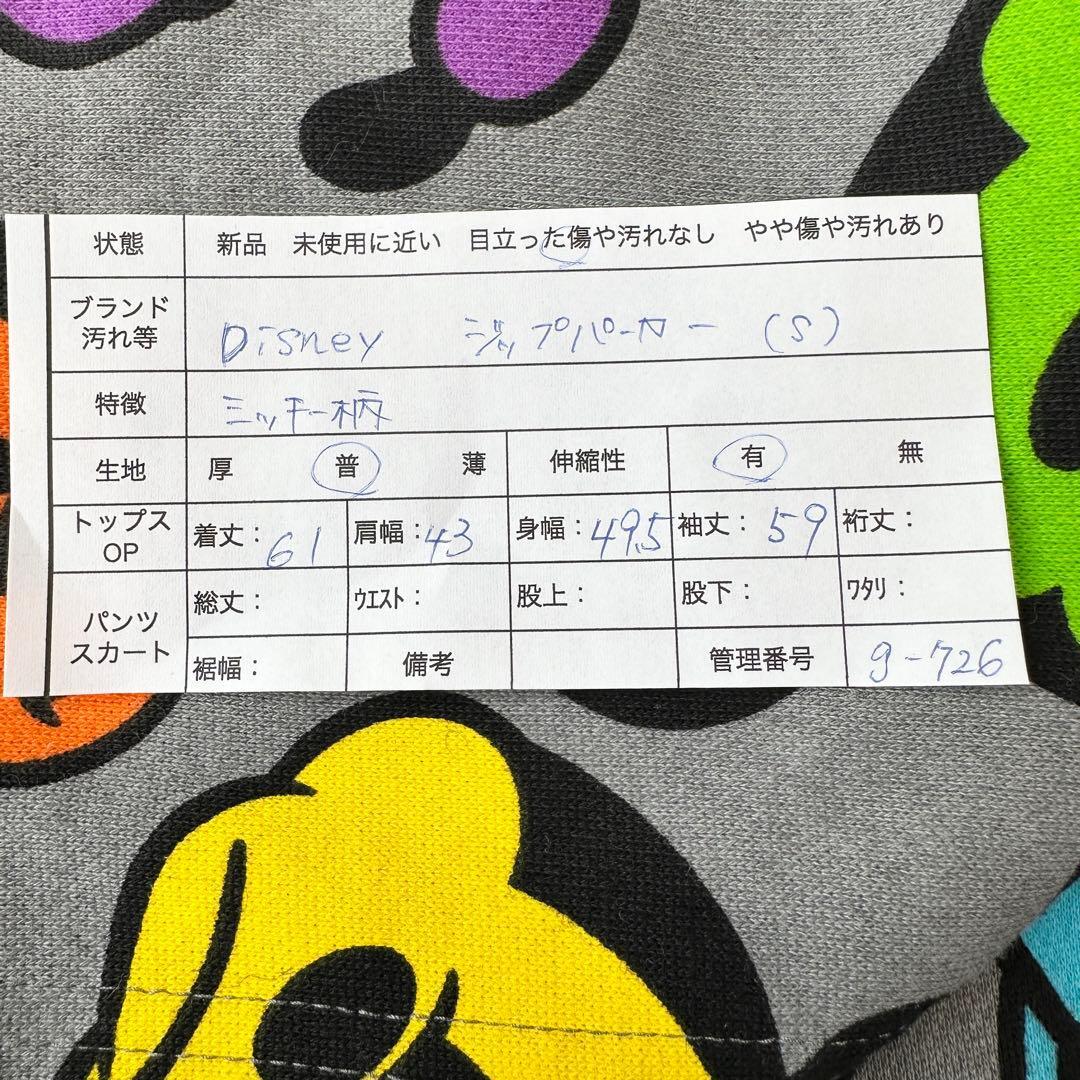 状態 新品 未使用に近い 目立った傷や汚れなし やや傷や汚れあり
ブランド
汚れ等 Disney ジップパーカー (S)
特徴 ミッキー柄
生地 厚 普 薄 伸縮性 有 無
トップス
OP 着丈: 61 肩幅: 43 身幅: 49.5 袖丈: 59 裄丈:
パンツ
スカート 総丈: ウエスト: 股上: 股下: ワタリ:
裾幅: 備考 管理番号 g-726